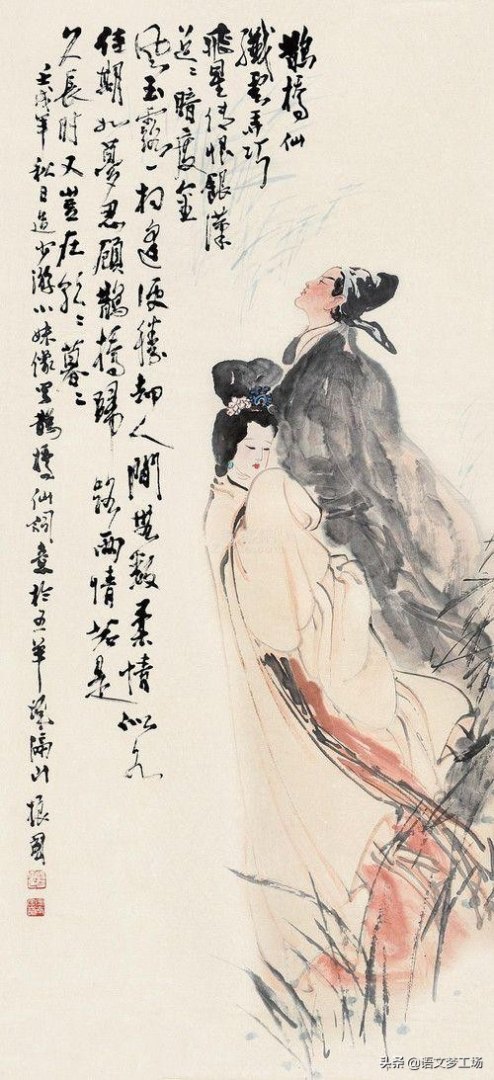 鵲橋仙
纖雲弄巧
飛星傳恨銀漢
迢〻暗度金
風玉露一相逢便勝却人間無數柔情似水
佳期如夢忍顧鵲橋歸路兩情若是
久長時又豈在朝〻暮〻
壬戌年秋日造少游小妹像寫鵲橋仙詞意於五羊城隔山振國
头条 @语文梦工场